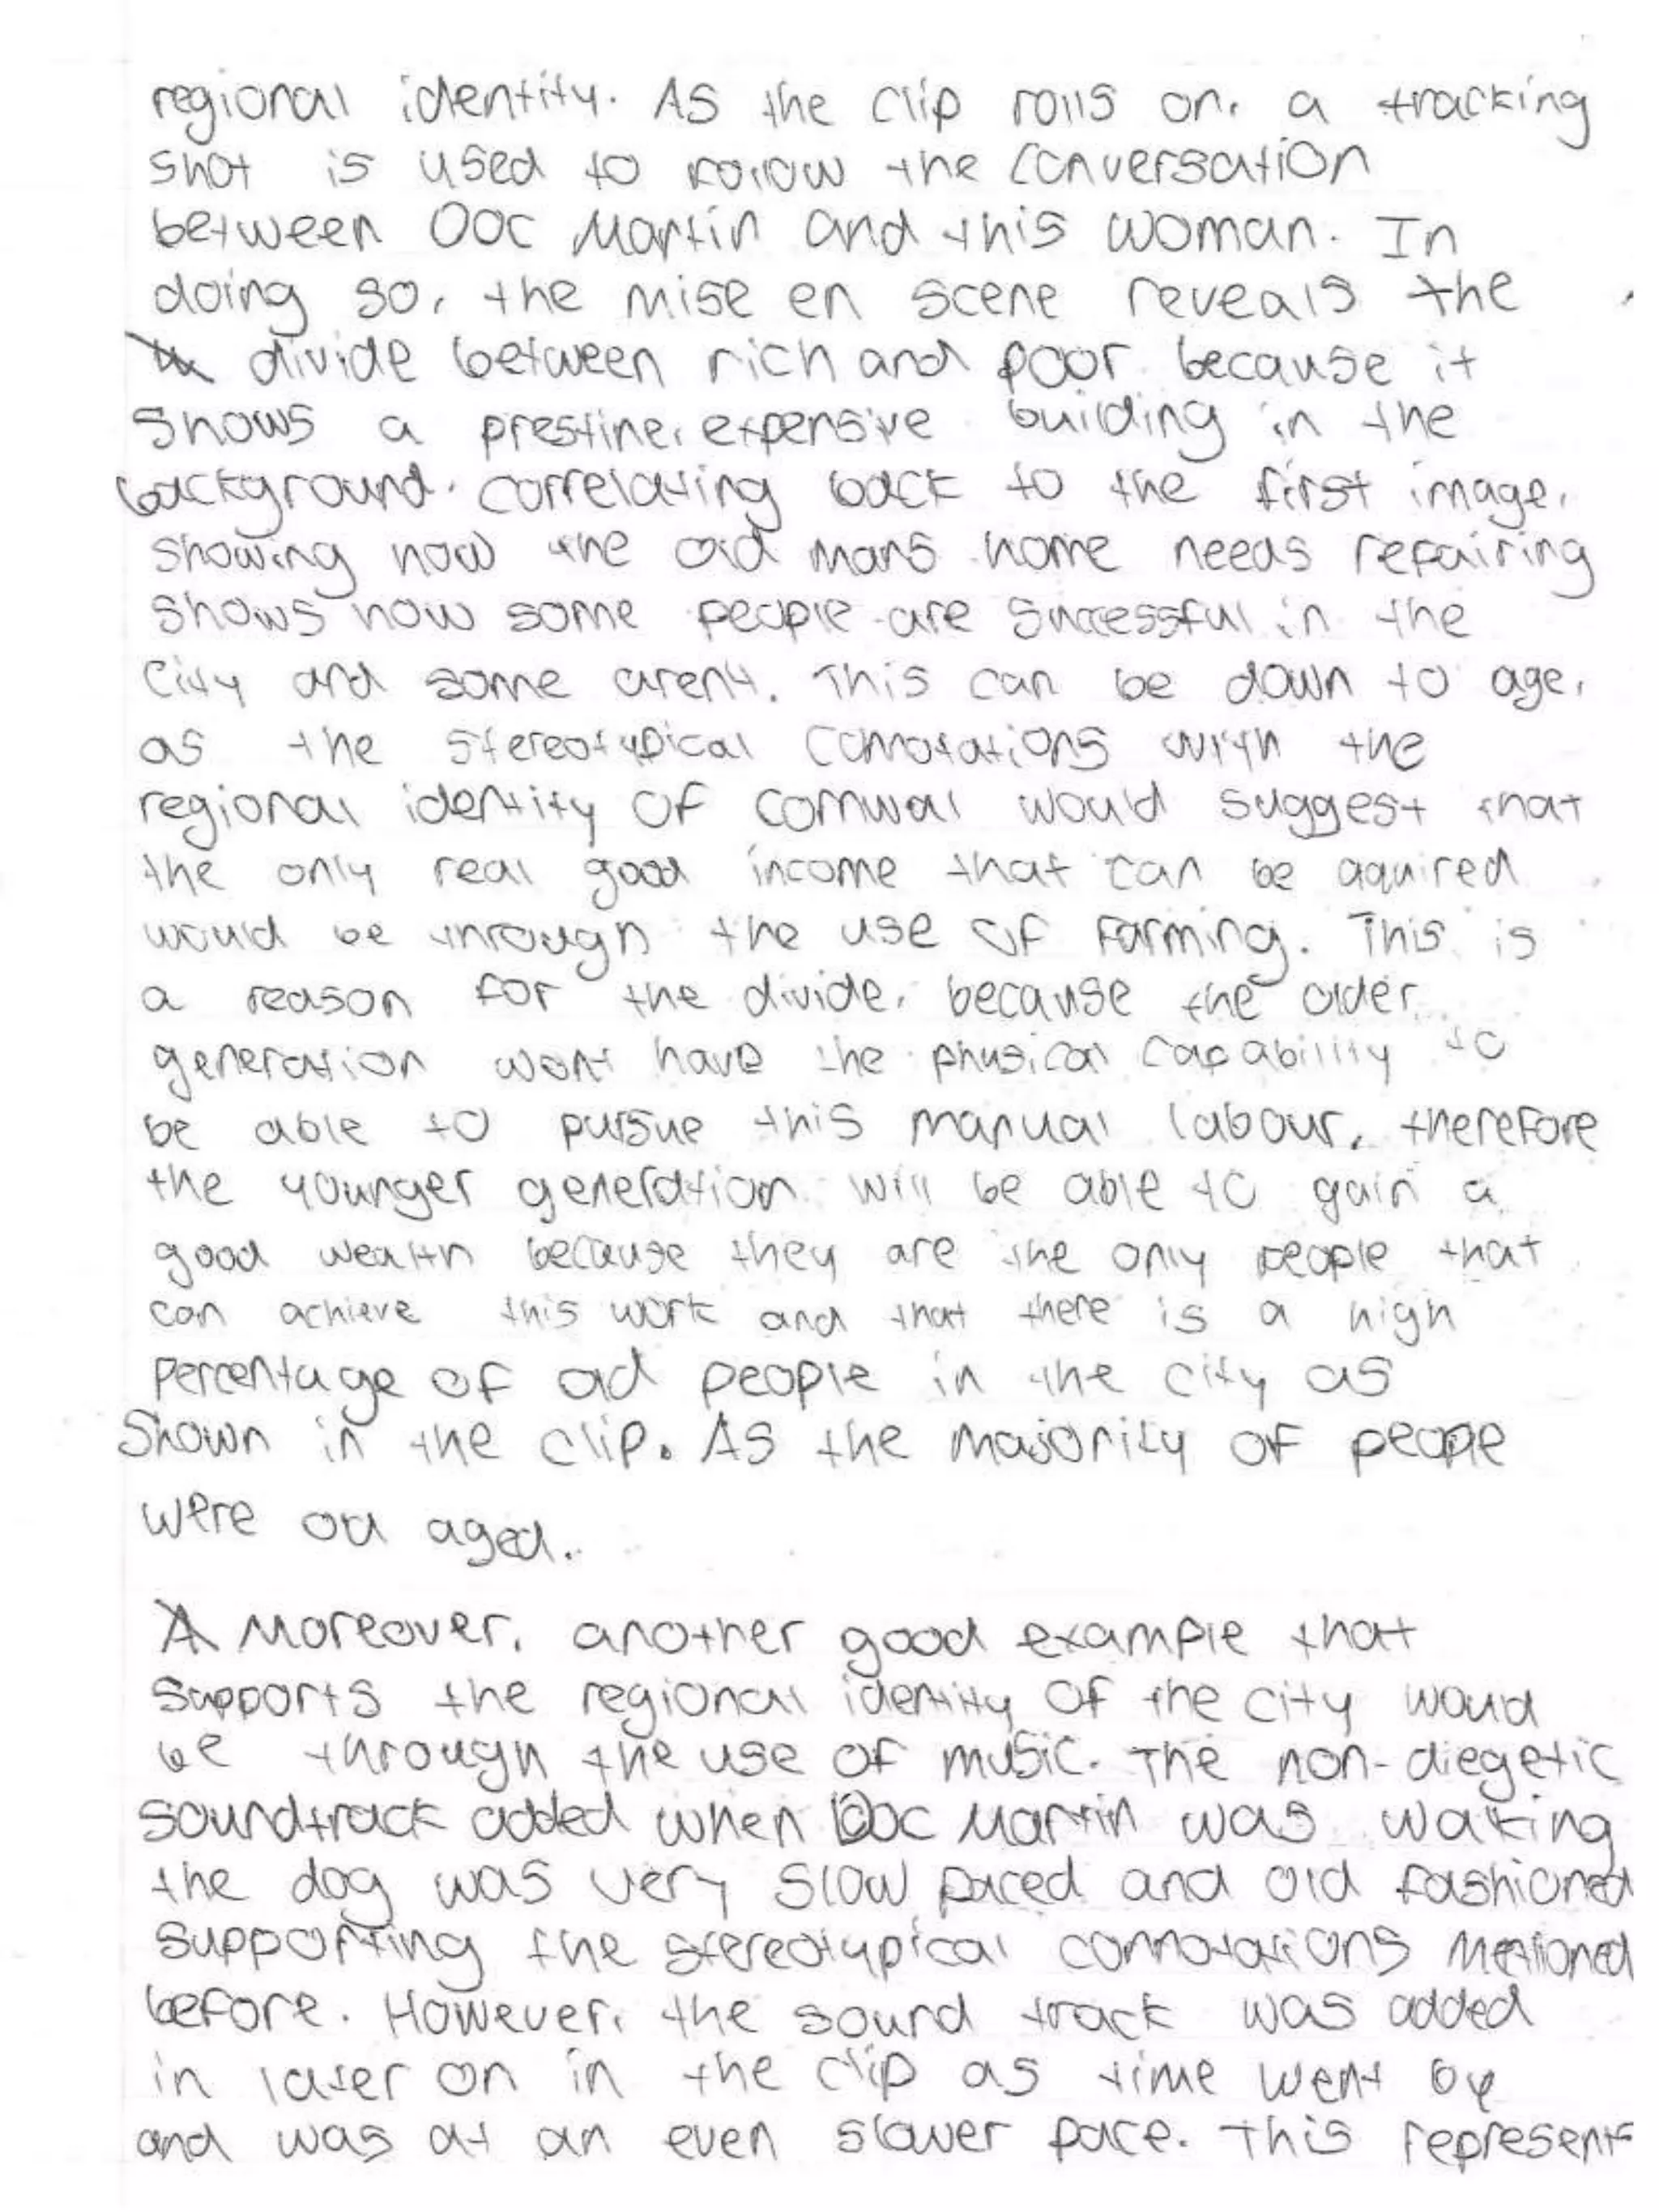 regional identity. As the clip rolls on, a tracking
shot is used to follow the conversation
between Doc Martin and this woman. In
doing so, the mise en scene reveals the
divide between rich and poor because it
shows a prestine, expensive building in the
background. correlating back to the first image,
showing how the old mans home needs repairing
shows how some people are successful in the
city and some arent. This can be down to age,
as the stereotypical connotations with the
regional identity of cornwal would suggest that
the only real good income that can be aquired
would be through the use of farming. This is
a reason for the divide, because the older
generation wont have the physical capability to
be able to pursue this manual labour, therefore
the younger generation will be able to gain a
good wealth because they are the only people that
can achieve this work and that there is a high
percentage of old people in the city as
shown in the clip. As the majority of people
were old aged.
A Moreover, another good example that
supports the regional identity of the city would
be through the use of music. The non-diegetic
soundtrack added when Doc Martin was walking
the dog was very slow paced and old fashioned
supporting the stereotypical connotations mentioned
before. However, the sound track was added
in later on in the clip as time went by
and was at an even slower pace. This represents